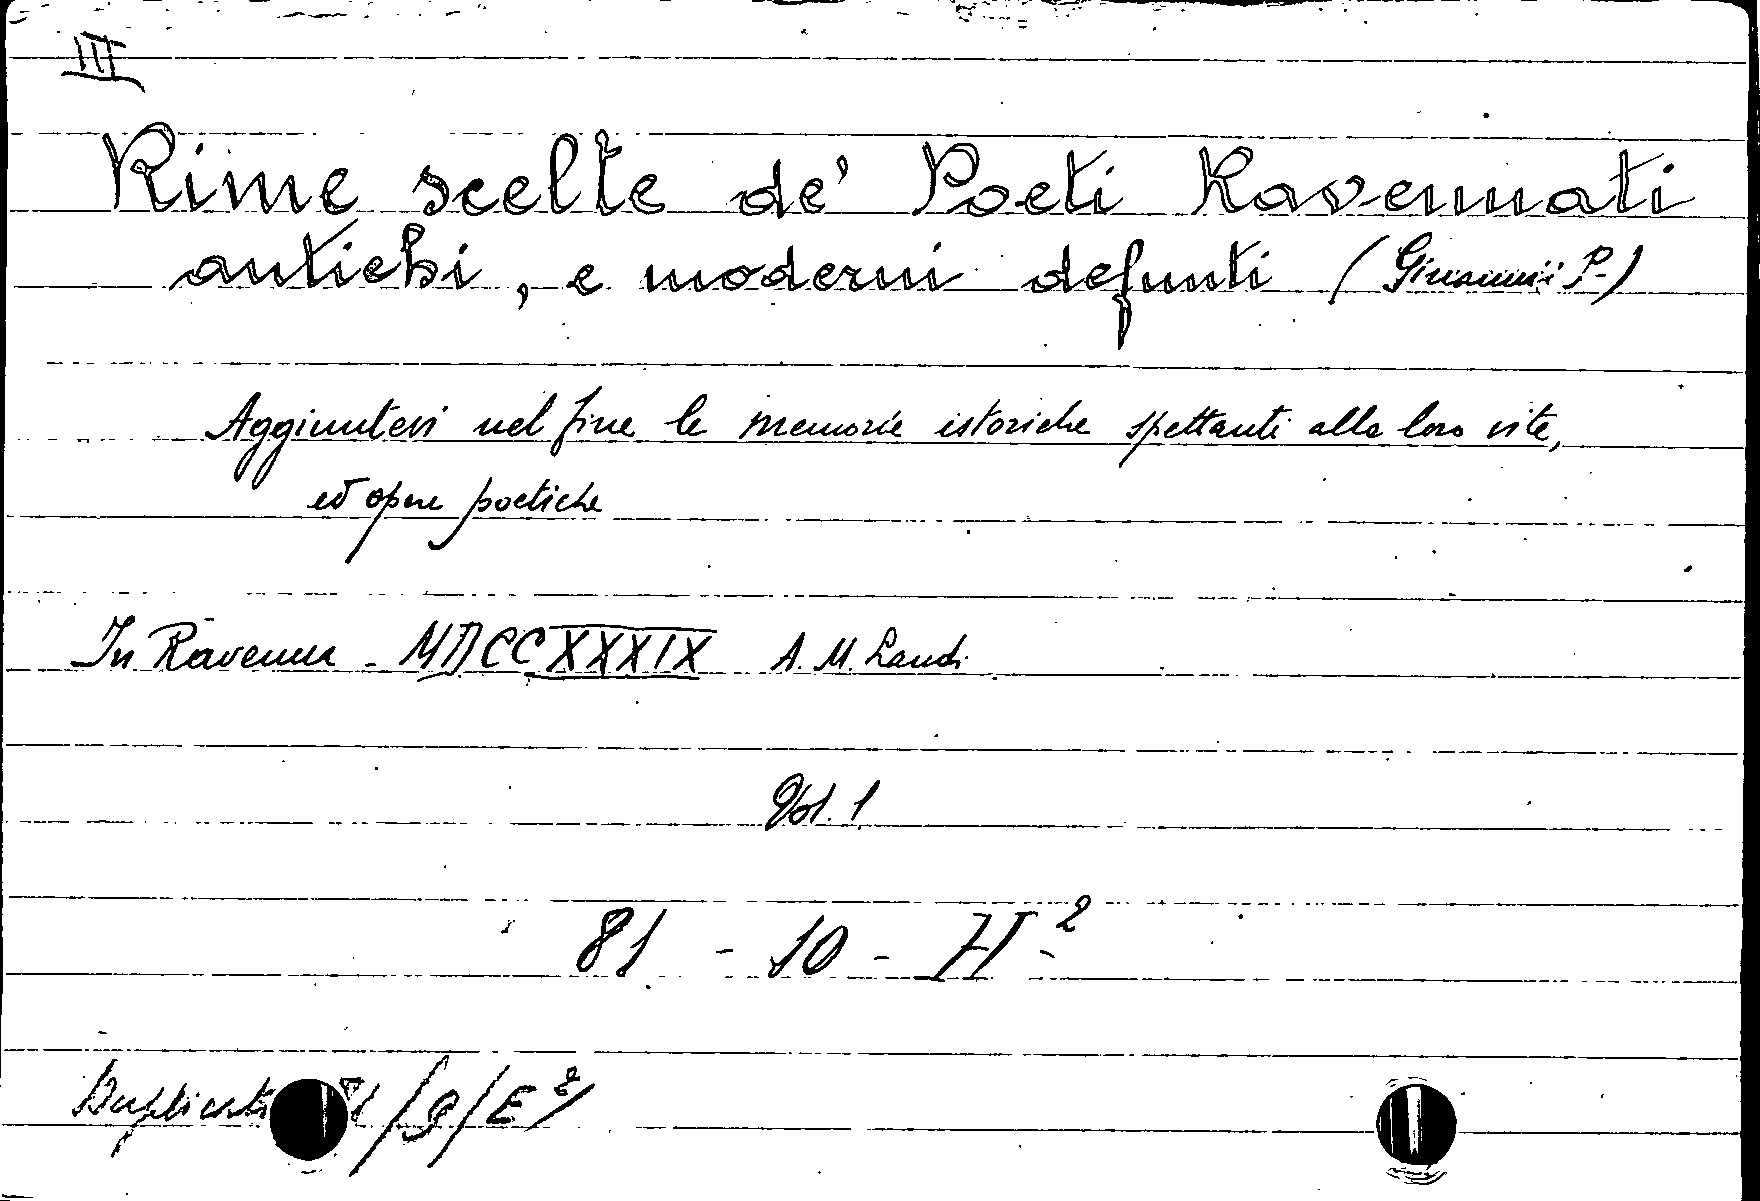 III
Rime scelte de' Poeti Ravennati
antichi, e moderni defunti (Ginanni P.)
Aggiuntevi nel fine le memorie istoriche spettanti alla loro vite,
ed opere poetiche
In Ravenna - MDCCXXXIX A. M. Landi
Vol. 1
81 - 10 - H²-
/9/E²/